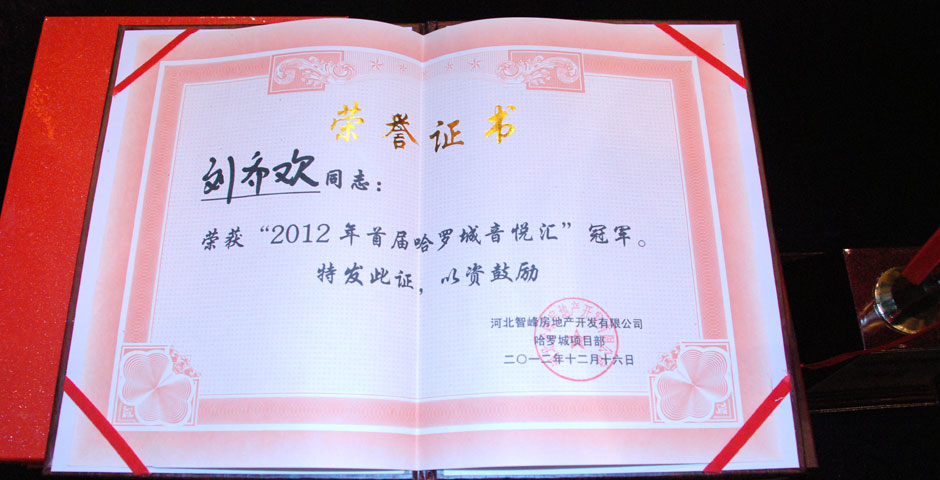 荣誉证书
刘希欢同志：
荣获“2012年首届哈罗城音悦汇”冠军。
特发此证，以资鼓励
河北智峰房地产开发有限公司
哈罗城项目部
二〇一二年十二月十六日